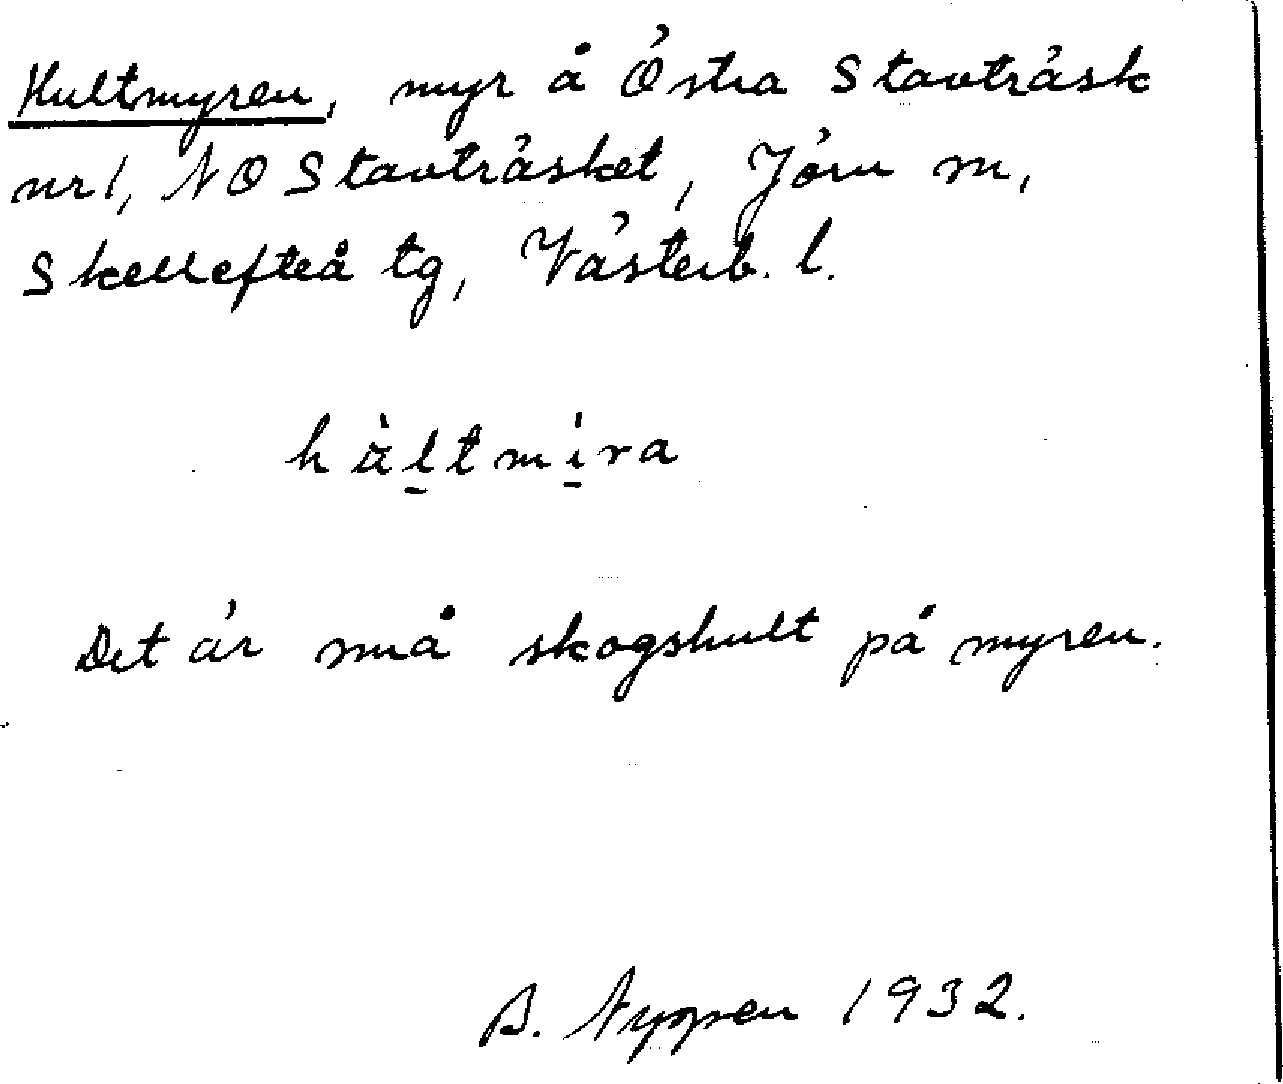 Hultmyren, myr å Östra Stavträsk
nr 1, NO Stavträsket, Jörn sn,
Skellefteå tg, Västerb. l.
hὰltmíra
Det är små skogshult på myren.
B. 1932.